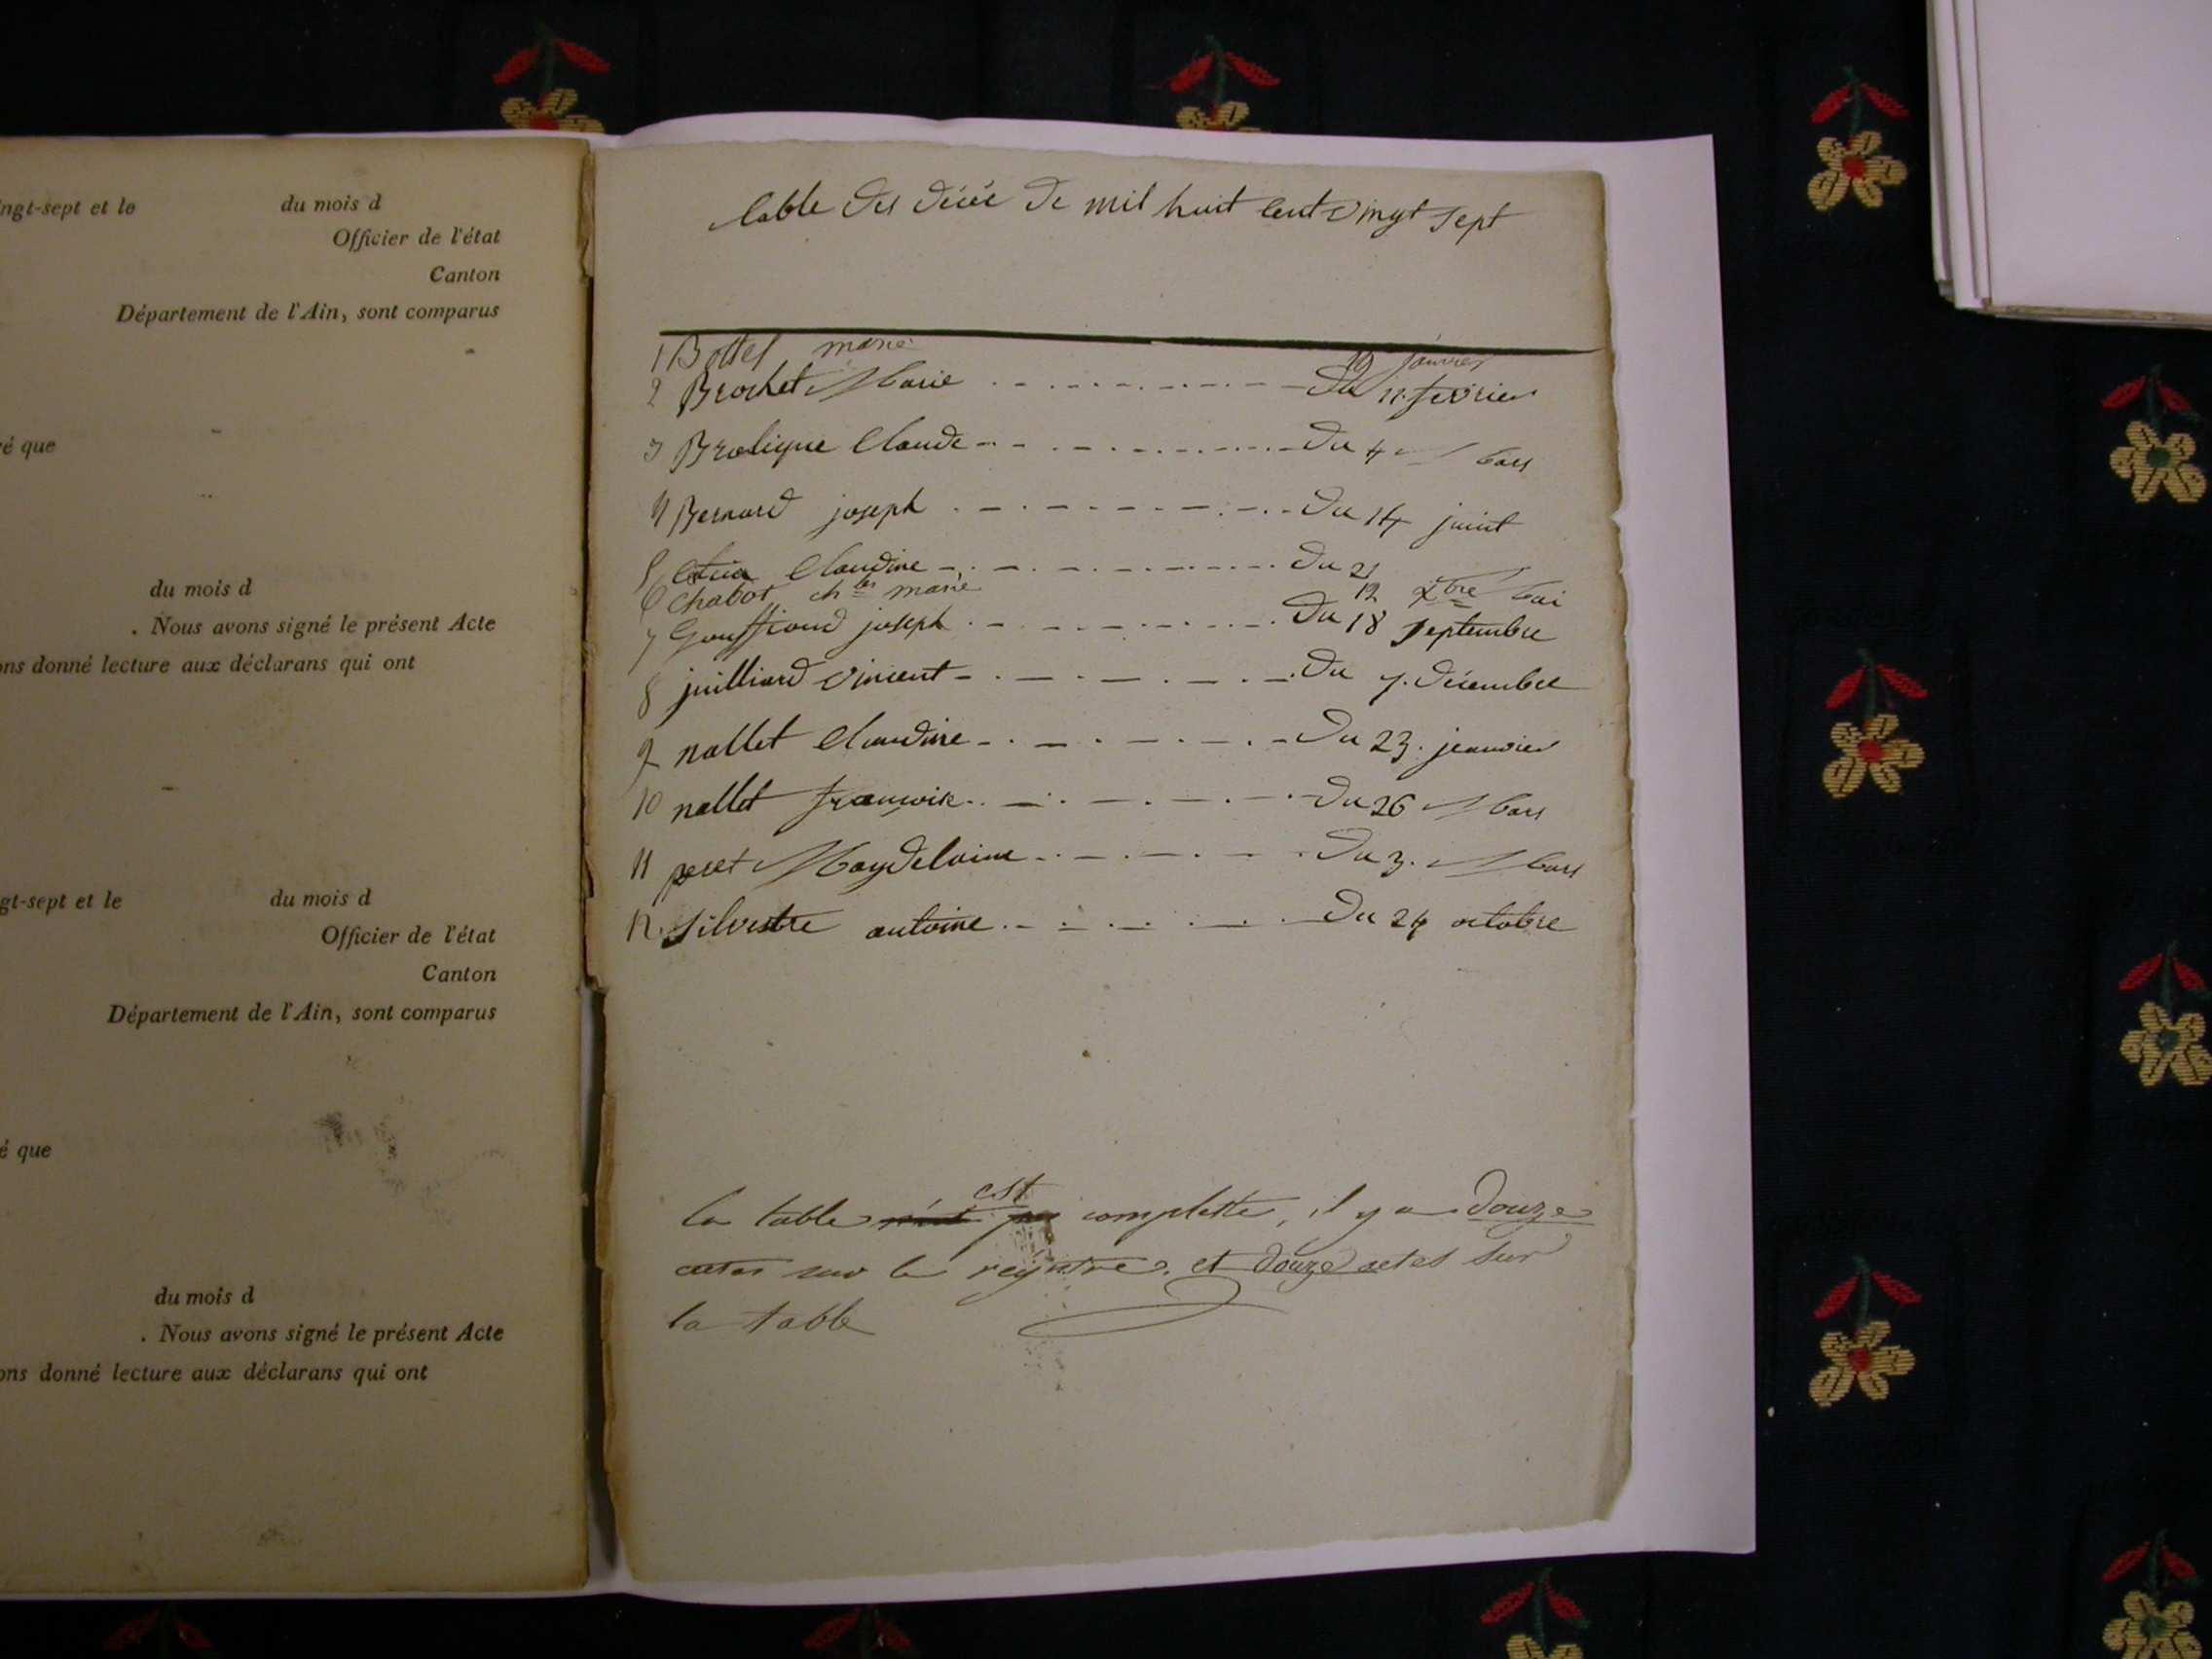 ingt-sept et le du mois d
Officier de l'état
Canton
Département de l'Ain, sont comparus
é que
du mois d
. Nous avons signé le présent Acte
ons donné lecture aux déclarans qui ont
gt-sept et le du mois d
Officier de l'état
Canton
Département de l'Ain, sont comparus
é que
du mois d
. Nous avons signé le présent Acte
ons donné lecture aux déclarans qui ont
table des décès de mil huit cent vingt sept
1 Bottel marie janvier
2 Brochet Marie Du 11. fevrier
3 Brolique Claude Du 4 Mars
4 Bernard joseph Du 14 juint
5 Claudine Du 21 Mai
6 Chabot ch les marie 12 xbre
7 Gouffioud joseph Du 18 Septembre
8 juilliard Vincent Du 7. Décembre
9 nallet Claudine Du 23. jeanvier
10 nallet françoise Du 26 Mars
11 peret Magdelaine Du 3. Mars
12. Silvestre antoine Du 24 octobre
la table n'est pas est complette, il y a Douze
actes sur le registre. et Douze actes sur
la table